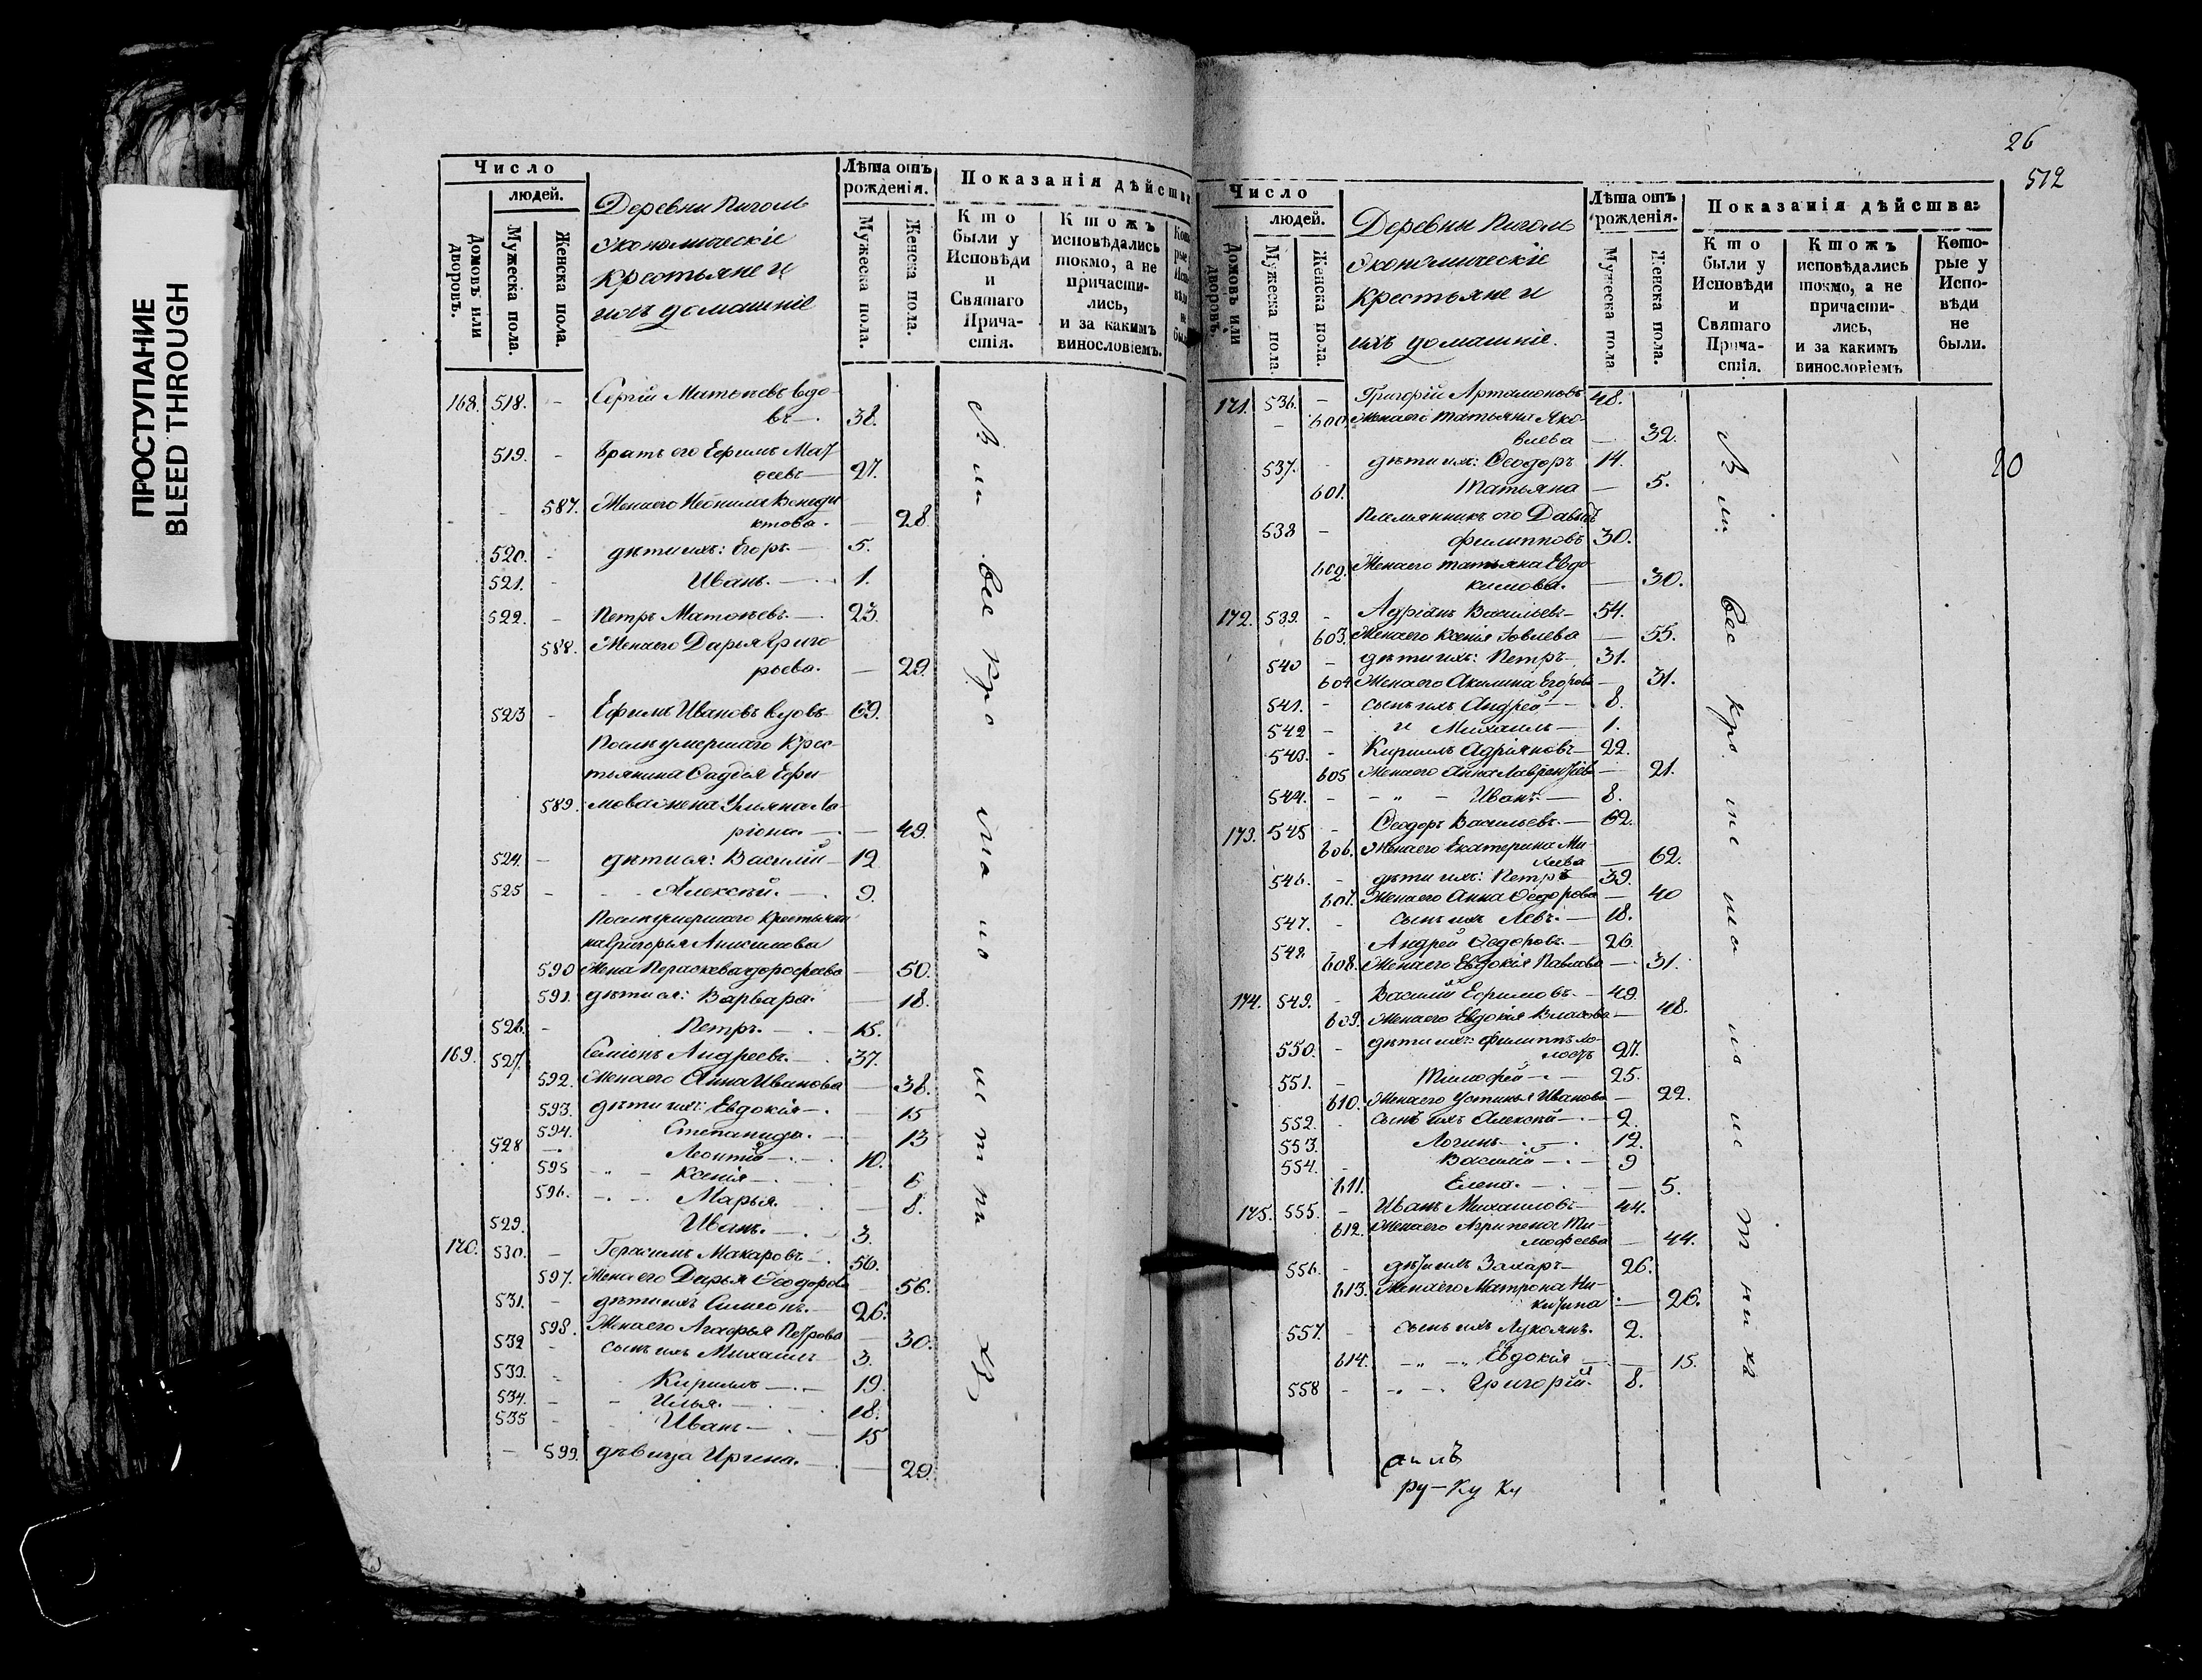 ПРОСТУПАНИЕ
BLEED THROUGH
Число
людей.
Домовъ или дворовъ.
Мужеска пола.
Женска пола.
Деревни Пигомъ
Экономическіе
крестьяне и
ихъ домашніе
Лѣта отъ рожденія.
Мужеска пола.
Женска пола.
Показанія дѣйства
Кто были у Исповѣди и Святаго Причастія.
Ктожъ исповѣдались токмо, а не причастились, и за какимъ винословіемъ.
168. 518. - Сергій Матвѣевъ вдовъ — 38.
519. - Братъ его Ефимъ Матвѣевъ — 27.
587. Жена его Неонила Венедиктова. — 28
520. - дѣти ихъ: Егоръ. — 5.
521. - Иванъ. — 1.
522. - Петръ Матвѣевъ. — 23.
588. Жена его Дарья Григорьева. — 29.
523 - Ефимъ Ивановъ вдовъ 69.
Послѣ умершаго крестьянина Фаддея Ефи-
589. мова жена Ульяна Ларіона. — 49
524. — дѣти ея: Василій — 12
525 - Алексѣй. — 9.
Послѣ умершаго крестьянина Григорья Анисимова
590 Жена Параскева Дорофеева — 50.
591. дѣти ея: Варвара. — 18.
526. - Петръ. — 15.
169. 527. Семіонъ Андреевъ. — 37.
592. Жена его Анна Иванова — 38.
593. дѣти ихъ: Евдокія —. 15
594. Степанида. — 13
528 — Леонтій — 10.
595 Ксенія — 6
596. Марья. — 8.
529. Иванъ. — 3.
170. 530. — Герасимъ Макаровъ — 56.
597. Жена его Дарья Ѳеодорова 56.
531. - дѣти ихъ Симеонъ. — 26.
598. Жена его Агафья Петрова — 30.
532 - сынъ ихъ Михаилъ — 3.
533. - Кириллъ — 19.
534. - Илья. — 18.
535 - Иванъ — 15
— 599. дѣвица Ирина. — 29.
26
512
20
Число
людей.
Домовъ или дворовъ.
Мужеска пола.
Женска пола.
Деревни Пигомъ
Экономическіе
крестьяне и
ихъ домашніе.
Лѣта отъ рожденія.
Мужеска пола
Женска пола.
Показанія дѣйства:
Кто были у Исповѣди и Святаго Причастія.
Ктожъ исповѣдались токмо, а не причастились, и за какимъ винословіемъ
Которые у Исповѣди не были.
171. 536. - Григорій Артамоновъ 48.
600. Жена его Татьяна Яковлева — 32.
537. - дѣти ихъ: Ѳеодоръ 14.
601. Татьяна — 5.
538 - Племянникъ его Давыдъ Филипповъ 30.
602. Жена его Татьяна Евдокимова. — 30.
172. 539. - Адріанъ Васильевъ — 54.
603. Жена его Ксенія Іовлева — 55.
540 - дѣти ихъ: Петръ — 31.
604 Жена его Акилина Егорова — 31.
541. - сынъ ихъ Андрей — 8.
542 - и Михаилъ — 1.
543. - Кириллъ Адріяновъ — 22.
605 Жена его Анна Лаврентьева — 21.
544. - - " - Иванъ. — 8.
173. 545 - Ѳеодоръ Васильевъ. — 62.
606. Жена его Екатерина Михеева — 62.
546. - дѣти ихъ: Петръ — 39.
607. Жена его Анна Ѳедорова — 40
547. - сынъ ихъ Левъ. — 18.
548 Андрей Ѳедоровъ. — 26
608. Жена его Евдокія Павлова — 31.
174. 549. - Василій Ефимовъ. — 49.
609. Жена его Евдокія Власова — 48.
550. - дѣти ихъ: Филиппъ холостъ 27.
551. - Тимофей — 25.
610. Жена его Устинья Иванова — 22.
552. - сынъ ихъ Алексѣй — 2.
553. Логинъ — 12.
554. - Василій — 9
611. Елена. — 5.
175. 555. - Иванъ Михаиловъ — 44.
612. Жена его Агрипена Тимофеева — 44.
556. - дѣти ихъ Захаръ — 26.
613. Жена его Матрона Никитина — 26.
557. - сынъ ихъ Лукоянъ. 2.
614. - " - " Евдокія — 15.
558 - - " - Григорій. 8.